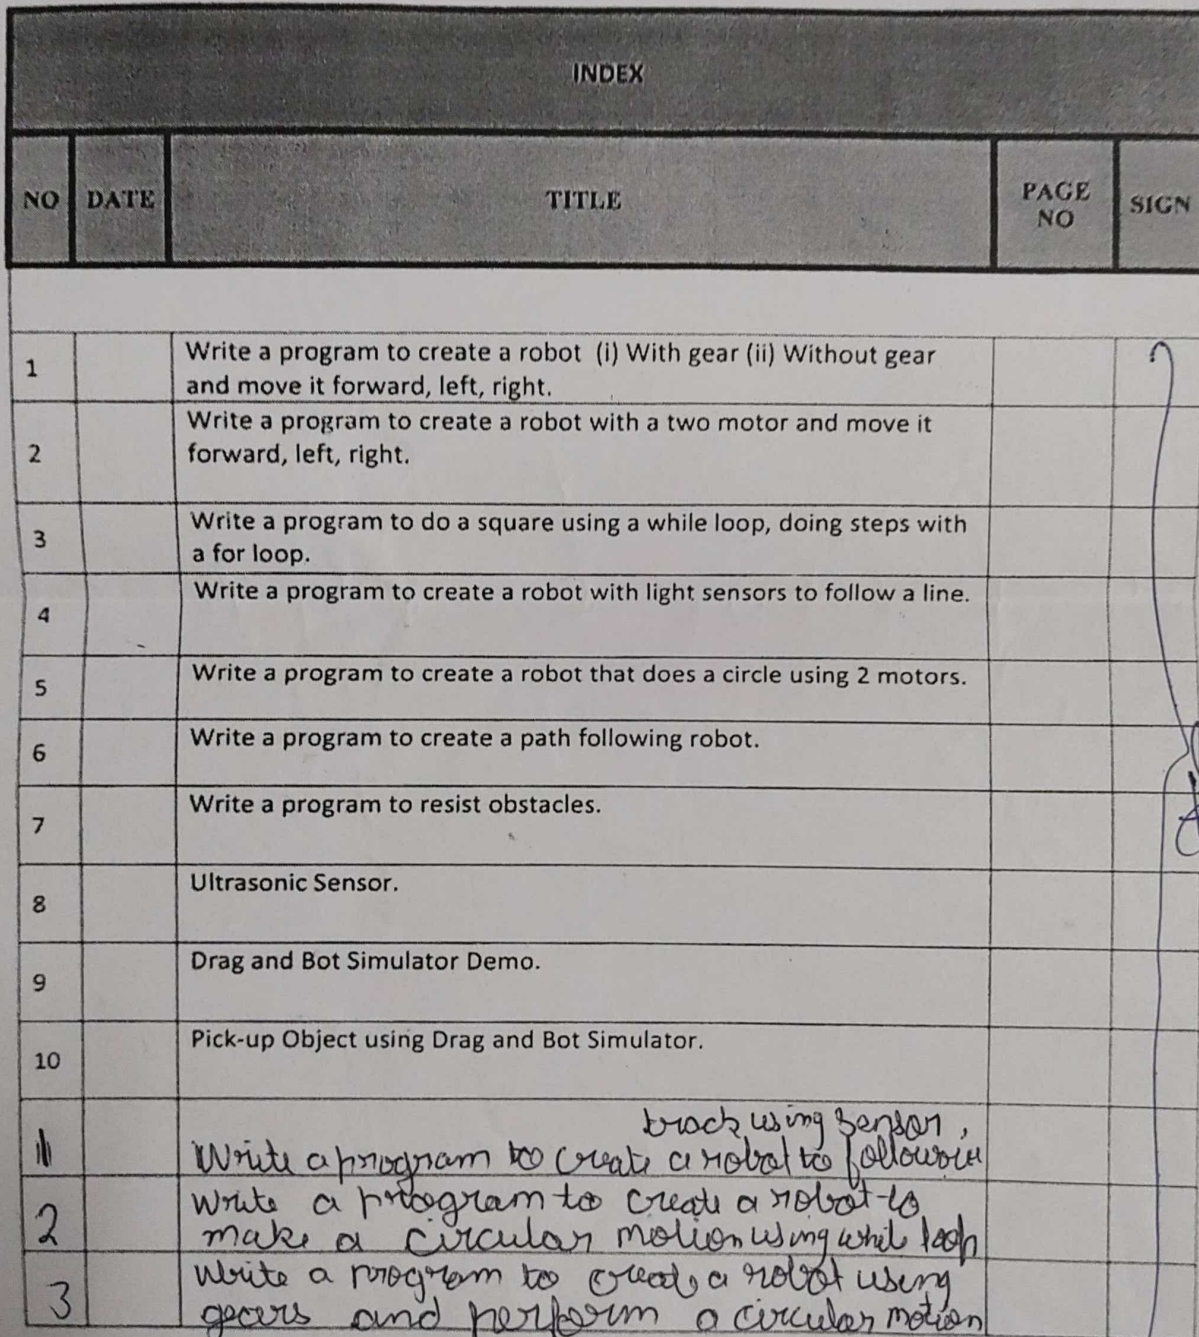 INDEX
NO DATE TITLE PAGE NO SIGN
1 Write a program to create a robot (i) With gear (ii) Without gear
and move it forward, left, right.
2 Write a program to create a robot with a two motor and move it
forward, left, right.
3 Write a program to do a square using a while loop, doing steps with
a for loop.
4 Write a program to create a robot with light sensors to follow a line.
5 Write a program to create a robot that does a circle using 2 motors.
6 Write a program to create a path following robot.
7 Write a program to resist obstacles.
8 Ultrasonic Sensor.
9 Drag and Bot Simulator Demo.
10 Pick-up Object using Drag and Bot Simulator.
track using sensor,
Write a program to create a robot to
2 Write a program to create a robot to
make a circular motion using whil loop
3 Write a program to create a robot using
gears and perform a circular motion